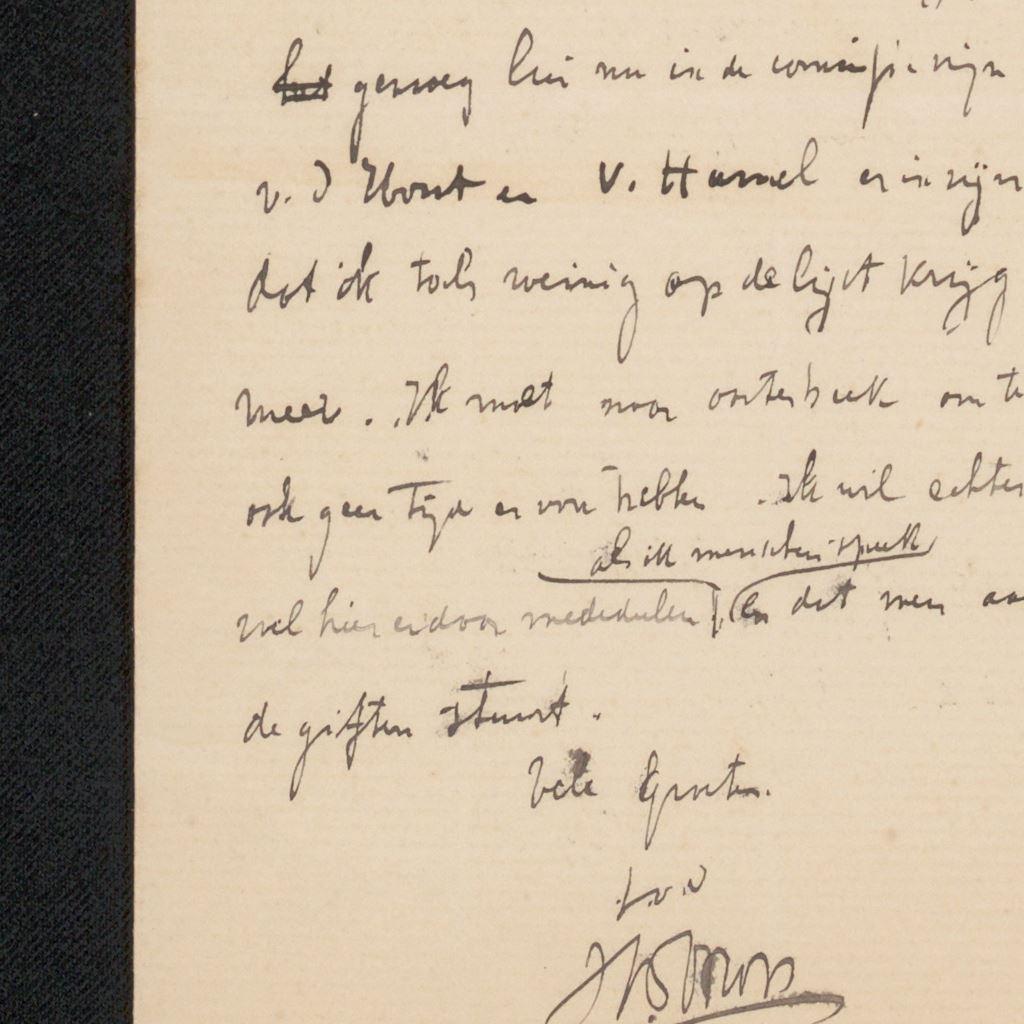 genoeg hier nu in de commissie zijn
v. d Hout en V. Hamel er in zijn
dat ik toch weinig op de lijst krijg
meer. Ik moet naar oosterbeek om te
ook geen tijd er voor hebben. Ik wil echter
als ik menschen spreek
wel hier en door mededeelen, en dat men aan
de giften stuurt.
Vele Groeten.
t.v.